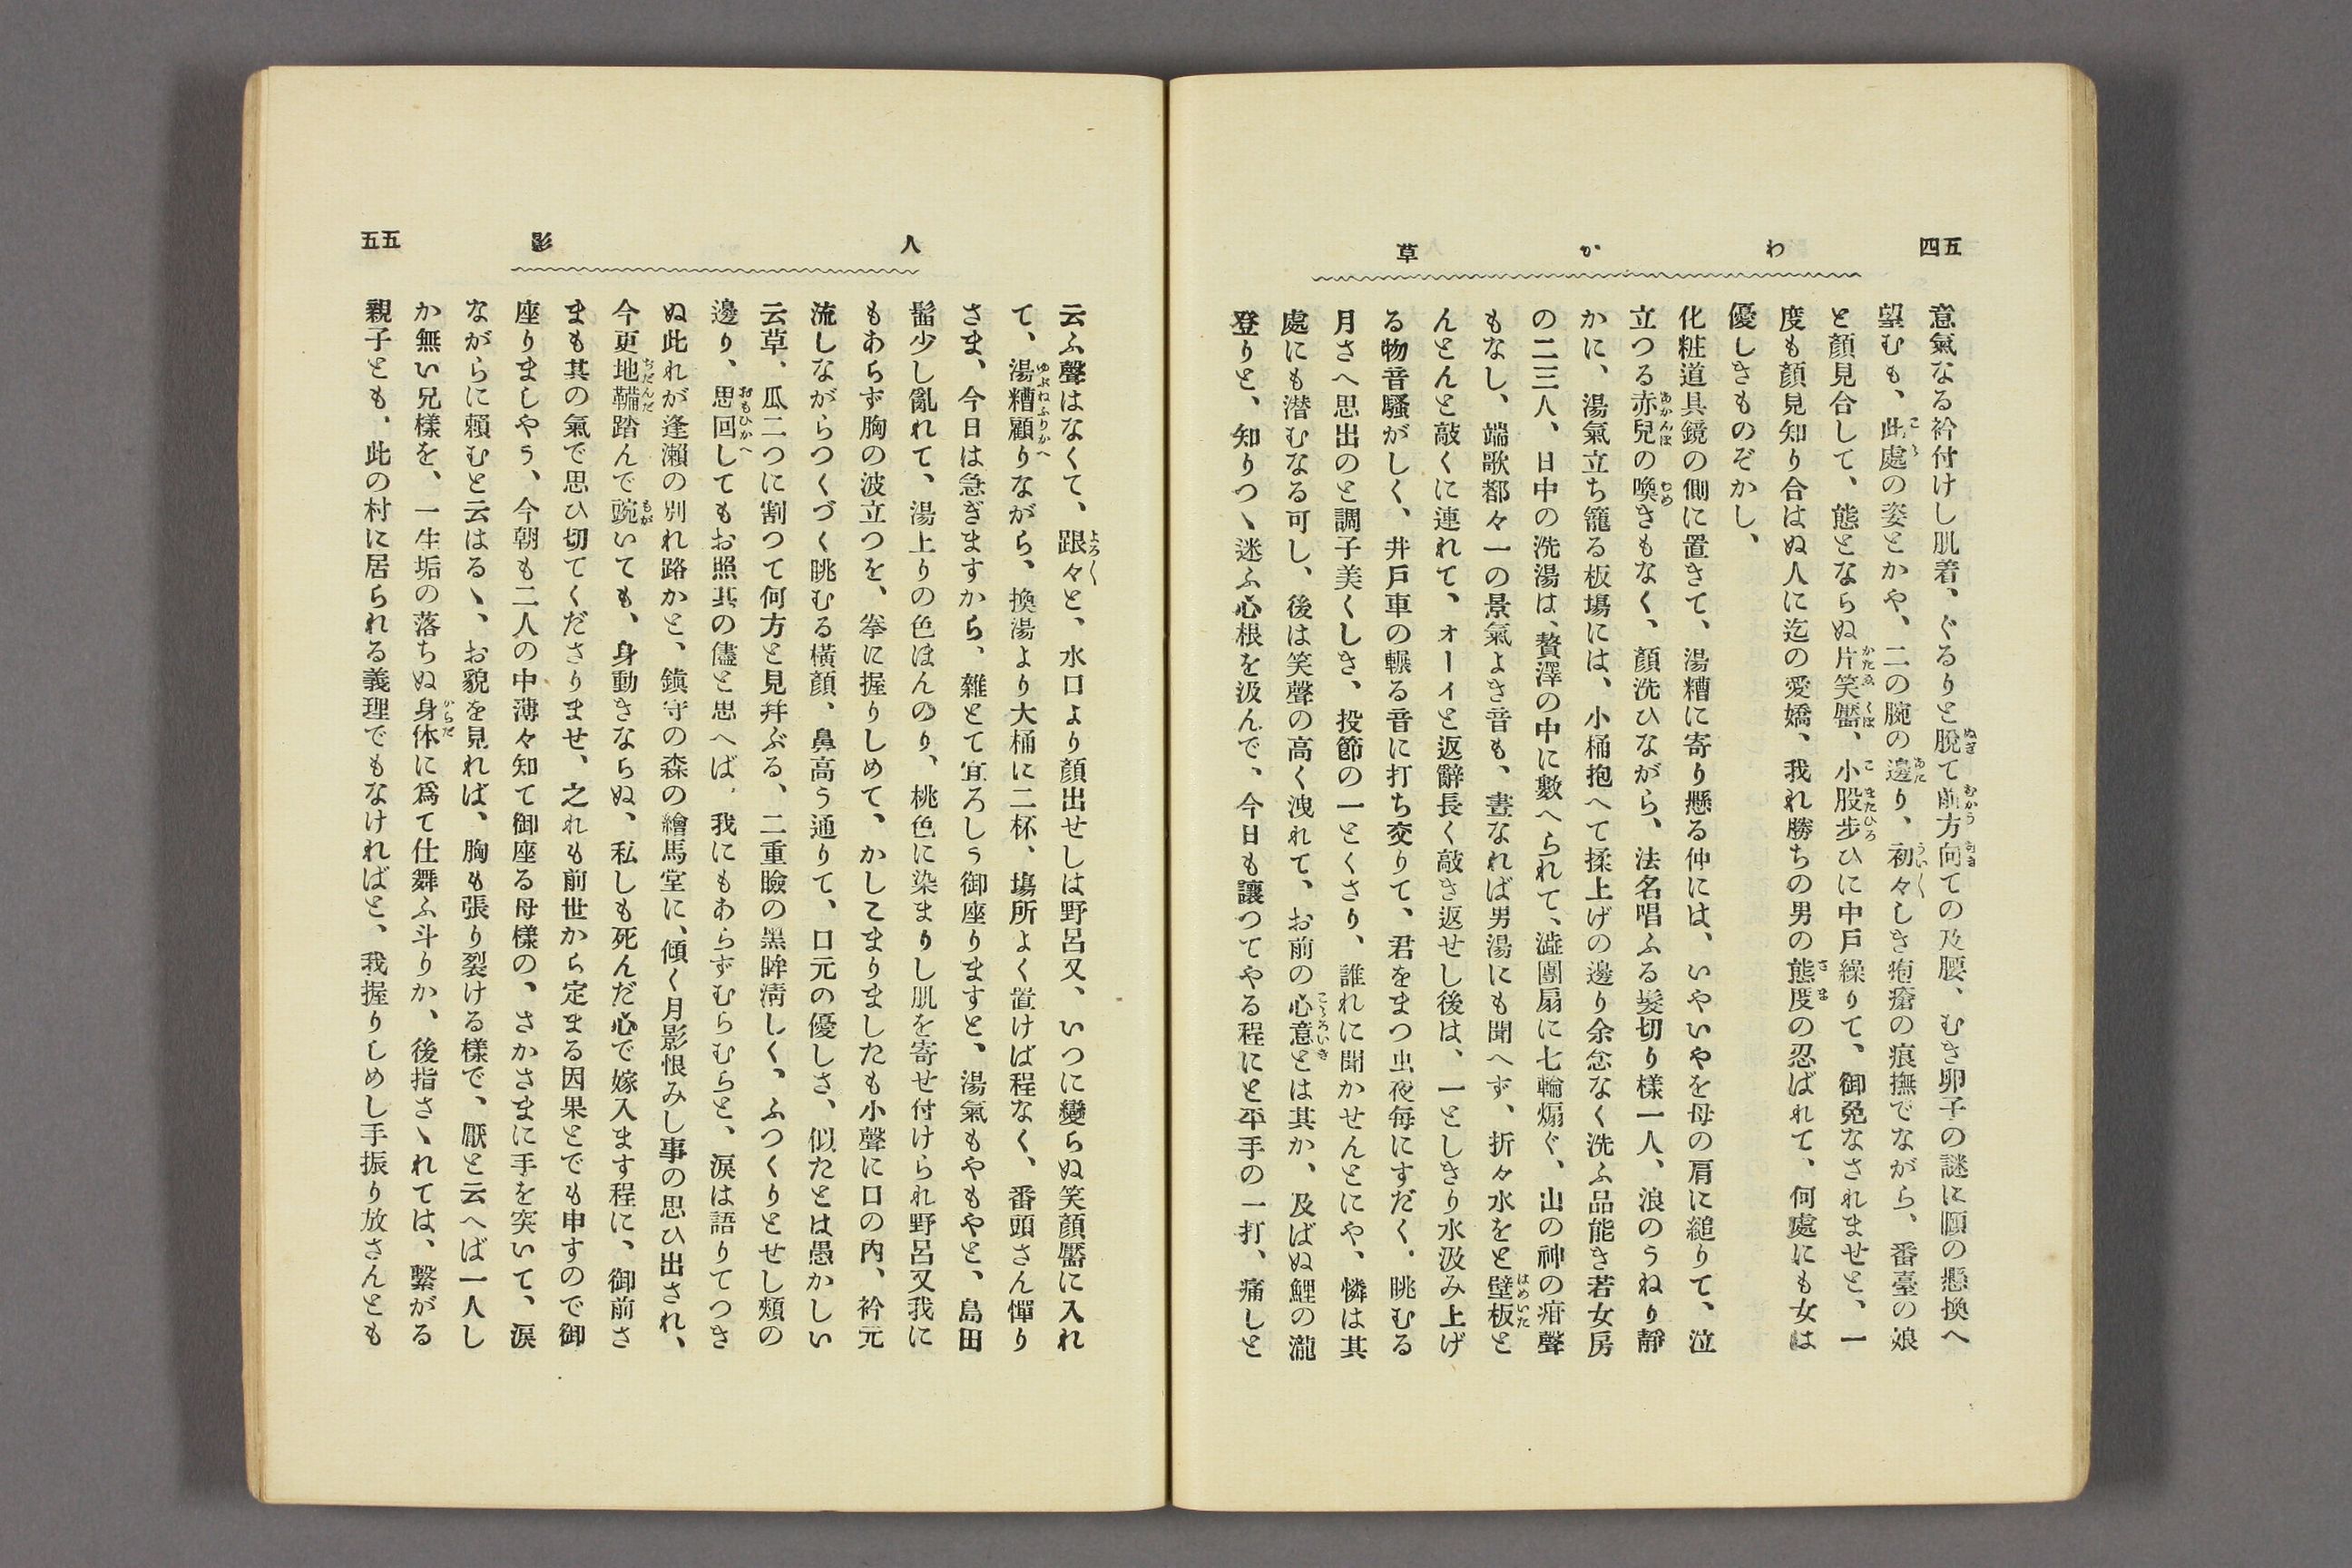 五四
わか草
意氣なる衿付けし肌着、ぐるりと脫て前方向ての及腰、むき卵子の謎に頤の懸換へ
望むも、此處の姿とかや、二の腕の邊り、初々しき疱瘡の痕撫でながら、番臺の娘
と顏見合して、態とならぬ片笑靨、小股步ひに中戶繰りて、御免なされませと、一
度も顏見知り合はぬ人に迄の愛嬌、我れ勝ちの男の態度の忍ばれて、何處にも女は
優しきものぞかし、
化粧道具鏡の側に置きて、湯糟に寄り懸る仲には、いやいやを母の肩に縋りて、泣
立つる赤兒の喚きもなく、顏洗ひながら、法名唱ふる髮切り樣一人、浪のうねり靜
かに、湯氣立ち籠る板塲には、小桶抱へて揉上げの邊り余念なく洗ふ品能き若女房
の二三人、日中の洗湯は、贅澤の中に數へられて、澁團扇に七輪煽ぐ、山の神の疳聲
もなし、端歌都々一の景氣よき音も、晝なれば男湯にも聞へず、折々水をと壁板と
んとんと敲くに連れて、オーイと返辭長く敲き返せし後は、一としきり水汲み上げ
る物音騷がしく、井戶車の輾る音に打ち交りて、君をまつ虫夜每にすだく、眺むる
月さへ思出のと調子美くしき、投節の一とくさり、誰れに聞かせんとにや、憐は其
處にも潜むなる可し、後は笑聲の高く洩れて、お前の心意とは其か、及ばぬ鯉の瀧
登りと、知りつゝ迷ふ心根を汲んで、今日も讓つてやる程にと平手の一打、痛しと
人影
五五
云ふ聲はなくて、踉々と、水口より顏出せしは野呂又、いつに變らぬ笑顏靨に入れ
て、湯糟顧りながら、換湯より大桶に二杯、塲所よく置けば程なく、番頭さん憚り
さま、今日は急ぎますから、雜とて宜ろしう御座りますと、湯氣もやもやと、島田
髷少し亂れて、湯上りの色ほんのり、桃色に染まりし肌を寄せ付けられ野呂又我に
もあらず胸の波立つを、拳に握りしめて、かしこまりましたも小聲に口の內、衿元
流しながらつくづく眺むる橫顏、鼻高う通りて、口元の優しさ、似たとは愚かしい
云草、瓜二つに割つて何方と見幷ぶる、二重瞼の黑眸淸しく、ふつくりとせし頰の
邊り、思回してもお照其の儘と思へば、我にもあらずむらむらと、淚は語りてつき
ぬ此れが逢瀨の別れ路かと、鎭守の森の繪馬堂に、傾く月影恨みし事の思ひ出され、
今更地鞴踏んで踠いても、身動きならぬ、私しも死んだ心で嫁入ます程に、御前さ
まも其の氣で思ひ切てくださりませ、之れも前世から定まる因果とでも申すので御
座りましやう、今朝も二人の中薄々知て御座る母樣の、さかさまに手を突いて、淚
ながらに賴むと云はるゝ、お貌を見れば、胸も張り裂ける樣で、厭と云へば一人し
か無い兄樣を、一生垢の落ちぬ身体に爲て仕舞ふ斗りか、後指さゝれては、繫がる
親子とも、此の村に居られる義理でもなければと、我握りしめし手振り放さんとも